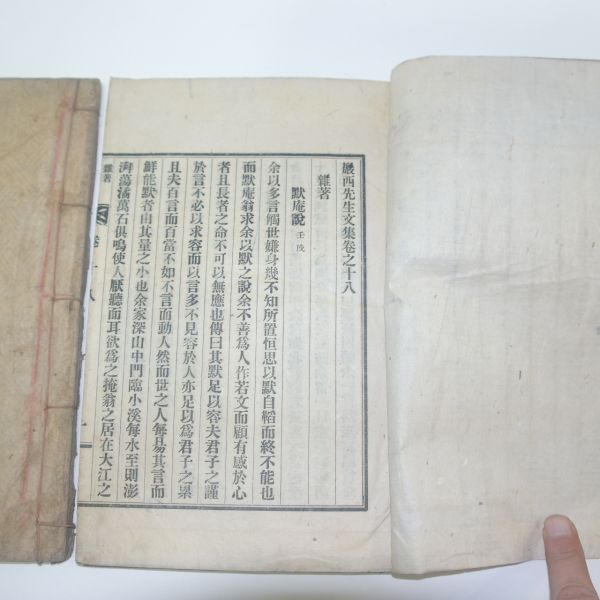 巖西先生文集卷之十八
雜著
默庵說 壬戌
余以多言觸世嫌身幾不知所置恒思以默自韜而終不能也
而默庵翁求余以默之說余不善爲人作若文而顧有感於心
者且長者之命不可以無應也傳曰其默足以容夫君子之謹
於言不必以求容而以言多不見容於人亦足以爲君子之累
且夫百言而百當不如不言而動人然而世之人每易其言而
鮮能默者由其量之小也余家深山中門臨小溪每水至則澎
湃蕩潏萬石俱鳴使人厭聽而耳欲爲之掩翁之居在大江之
雜著
卷十八